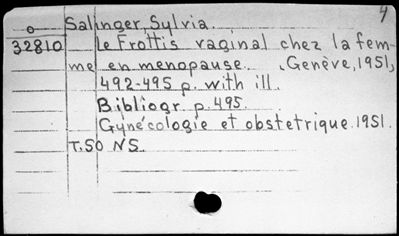 4
o Salinger, Sylvia.
32810 Le Frottis vaginal chez la fem-
me en menopause. Genève, 1951,
492-495 p. with ill.
Bibliogr. p. 495.
Gynécologie et obstetrique. 1951.
T.50 NS.